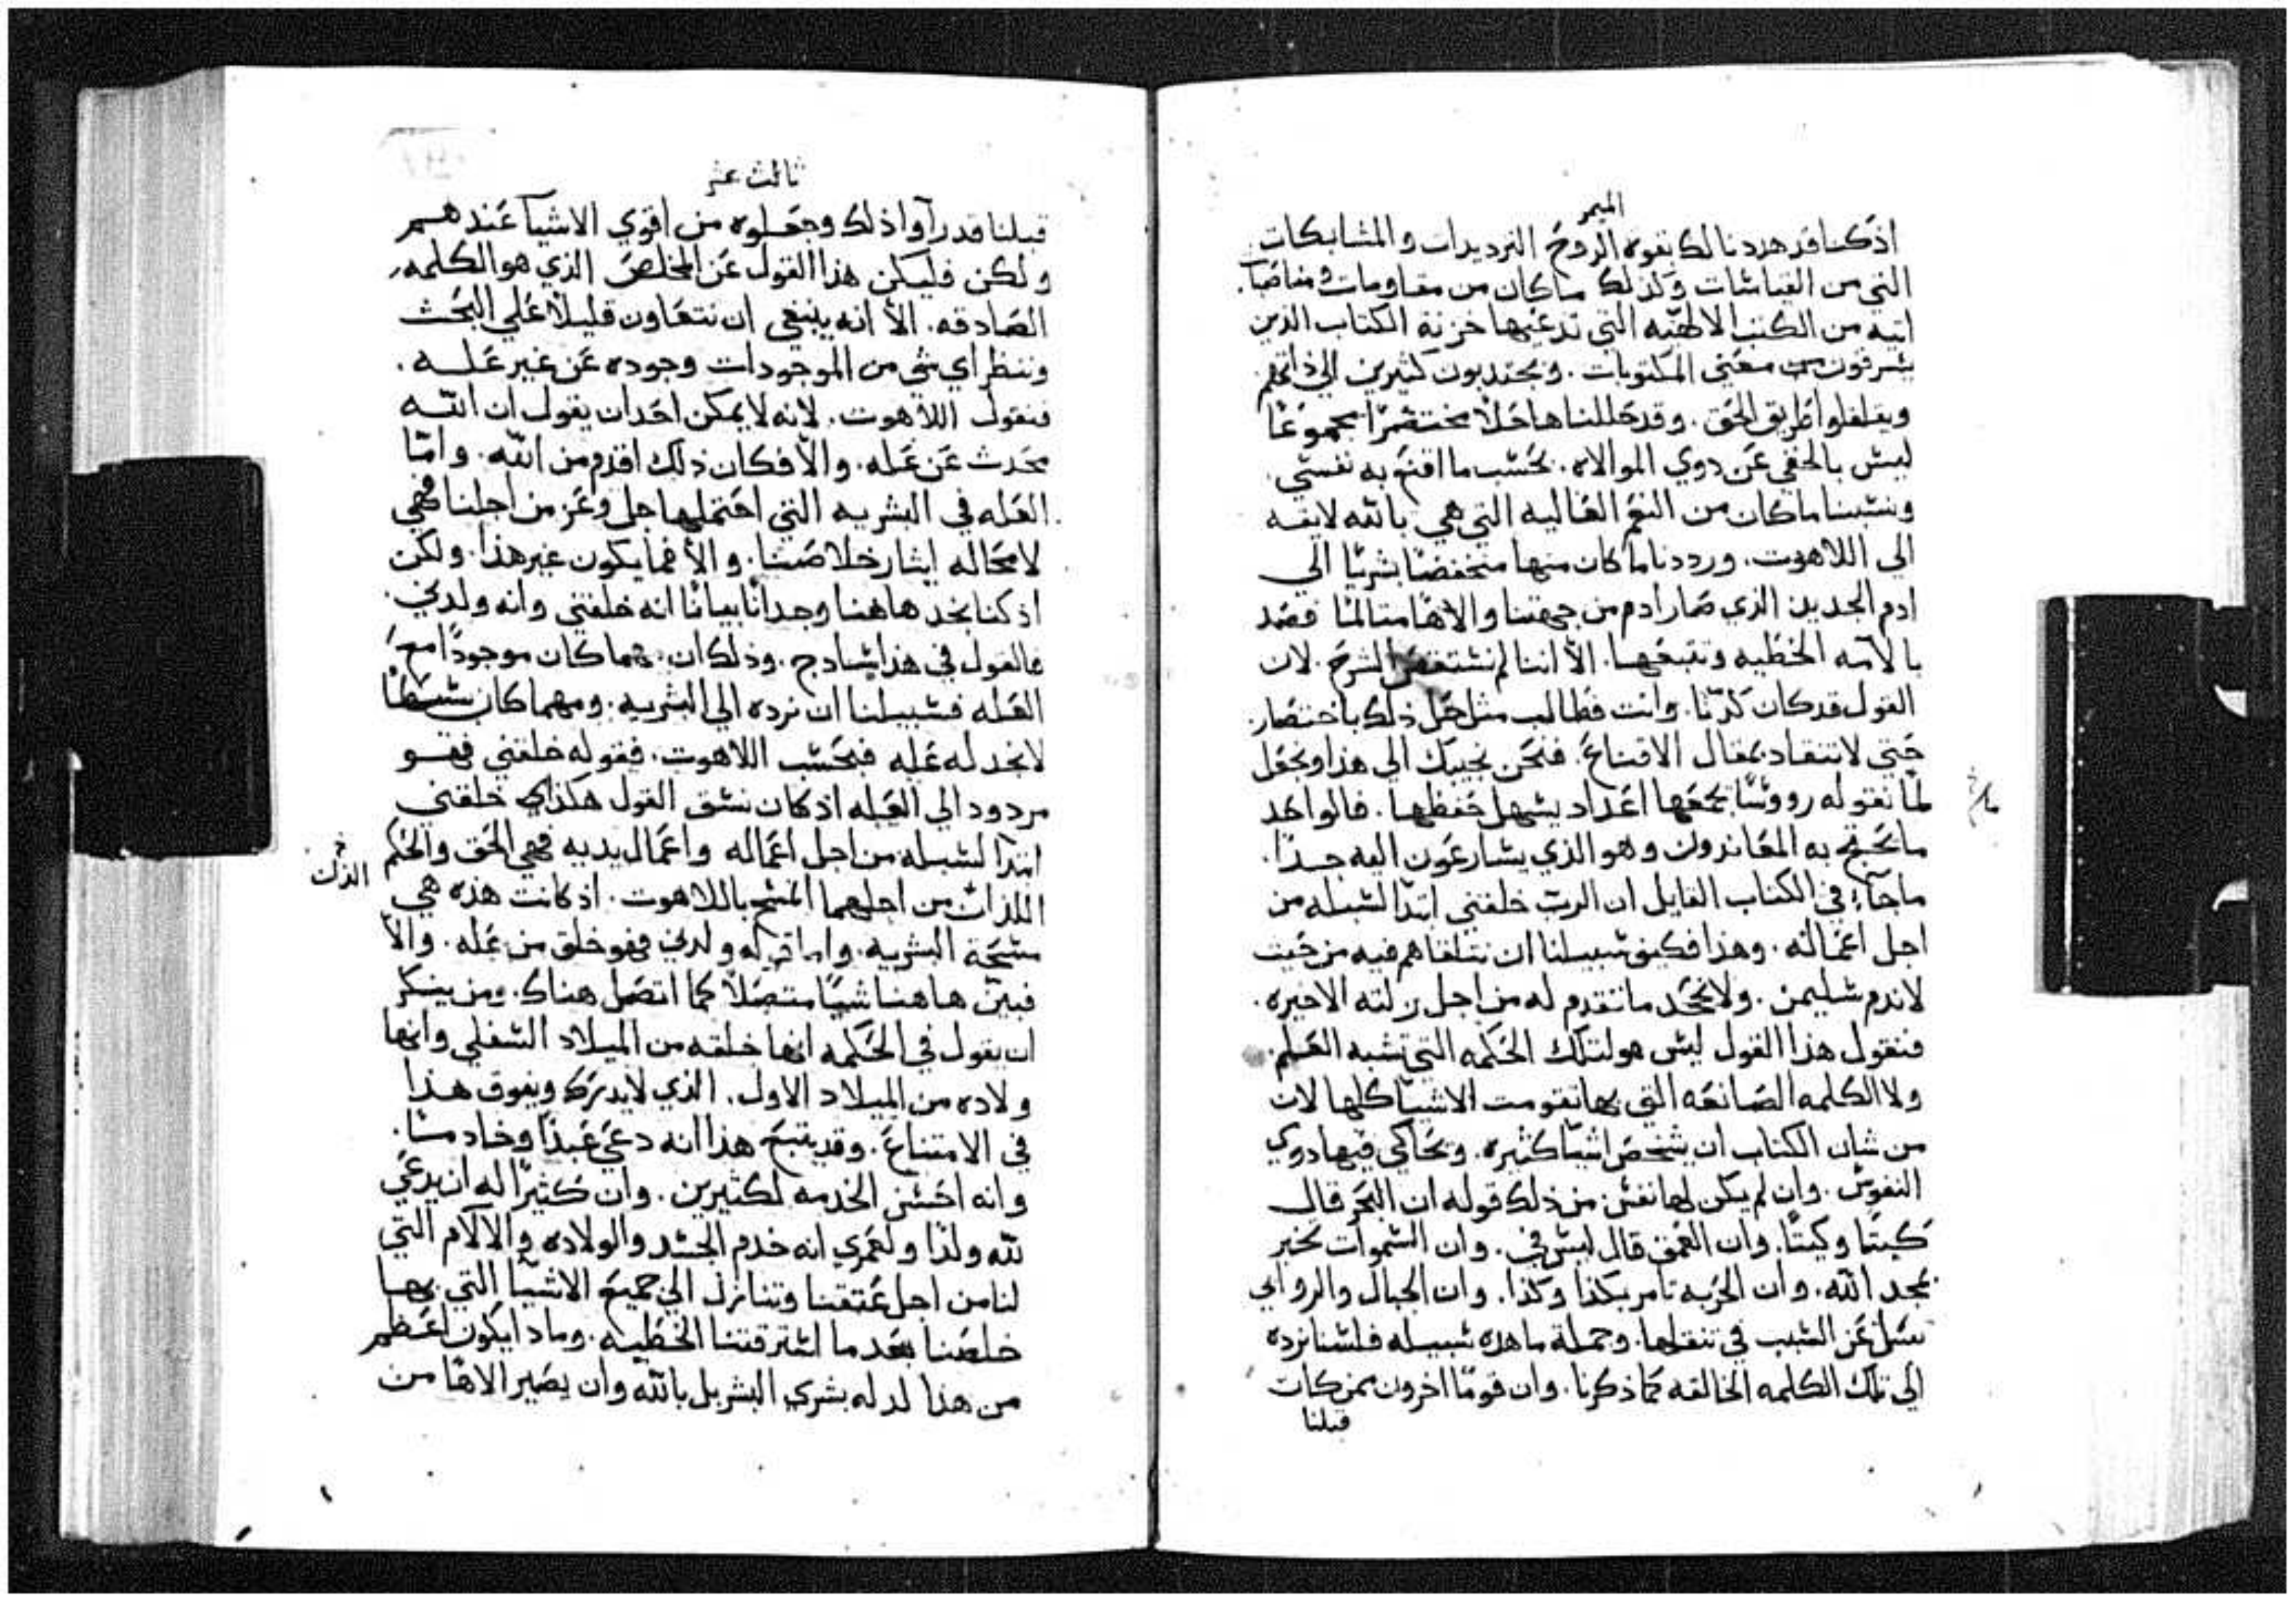 الميمر
اذ كنا قد هددنا لك بقوه الروح الترديدات والمشابكات
التي من القياسات وكذلك ما كان من مقاومات ومناصبا.
اتيه من الكتب الالاهيه التي تدعيها خزنة الكتاب الذين
يسرقون معني المكتوبات. ويجتدبون كثيرين الي ذاتهم
ويقلقلوا طريق الحق. وقد حللناها حلا مختصرا مجموعا
ليس بالخفي عن دوي الموالاه. بحسب ما اقنع به نفسي
ونسبنا ما كان من النغم العاليه التي هي بالله لايقه
الي اللاهوت. ورددنا ما كان منها منخفضا بشريا الي
ادم الجديد الذي صار ادم من جهتنا والاها متالما فصد
بالامه الخطيه وتتبعها. الا اننا لم نستقص الشرح. لان
القول قد كان كدنا. وانت فطالب مثل حل ذلك باختصار
حتي لا تنقاد بمقال الاقناع. فنحن نجيبك الي هذا ونجعل
لما نقوله رووسا تجمعها اعداد يسهل حفظها. فالواحد
ما يحتج به المعاندون وهو الذي يسارعون اليه جدا.
ما جاء في الكتاب القايل ان الرب خلقني ابتدا لسبله من
اجل اعماله. وهذا فكيف سبيلنا ان نتلقاهم فيه من حيث
لا ندم سليمن. ولا نجحد ما تقدم له من اجل زلته الاخيره.
فنقول هذا القول ليس هو لتلك الحكمه التي تشبه العلم
ولا الكلمه الصانعه التي بها تقومت الاشيا كلها لان
من شان الكتاب ان يشخص اشيا كثيره. وتحاكي فيها دوي
النفوس. وان لم يكن لها نفس من ذلك قوله ان البحر قال
كيتا وكيتا. وان العمق قال ليس في. وان السموات تخبر
بمجد الله. وان الحربه تامر بكذا وكذا. وان الجبال والروابي
تسل عن السبب في تنقلها. وجملة ما هذه سبيله فلسنا نرده
الي تلك الكلمه الخالقه كما ذكرنا. وان قوما اخرون ممن كان
قبلنا
ثالث عشر
قبلنا قد راوا ذلك وجعلوه من اقوي الاشيا عندهم
ولكن فليكن هذا القول عن المخلص الذي هو الكلمه
الصادقه. الا انه ينبغي ان نتعاون قليلا علي البحث
وننظر اي شي من الموجودات وجوده عن غير عله.
فنقول اللاهوت. لانه لا يمكن احدا ن يقول ان الله
محدث عن عله. والا فكان ذلك اقدم من الله. واما
العله في البشريه التي احتملها جل وعز من اجلنا فهي
لا محاله ايثار خلاصنا. والا فما يكون غير هذا. ولكن
اذ كنا نجد هاهنا وجدانا بيانا انه خلقني وانه ولدني.
فالقول في هذا سادج. وذلك ان مهما كان موجودا مع
العله فسبيلنا ان نرده الي البشريه. ومهما كان بسيطا
لا نجد له عله فبحسب اللاهوت. فقوله خلقني فهو
مردود الي العله اذ كان نسق القول هكذا خلقني
ابتدا لسبله من اجل اعماله واعمال يديه فهي الحق والحكم
اللذان من اجلهما المسح باللاهوت. اذ كانت هذه هي
مسحة البشريه. واما قوله ولدني فهو خلق من عله. والا
فبين هاهنا شيا متصلا كما اتصل هناك. ومن ينكر
ان يقول في الحكمه انها خلقه من الميلاد السفلي وانها
ولاده من الميلاد الاول. الذي لا يدرك ويفوق هذا
في الامتناع. وقد يتبع هذا انه دعي عبدا وخادما.
وانه احسن الخدمه لكثيرين. وان كثيرا له ان يدعي
لله ولدا ولعمري انه خدم الجسد والولاده والالام التي
لنا من اجل عتقنا وتنازل الي جميع الاشيا التي بها
خلصنا بعد ما استرقتنا الخطيه. وماذا يكون اعظم
من هذا لدله بشري البشر بل بالله وان يصير الاها من